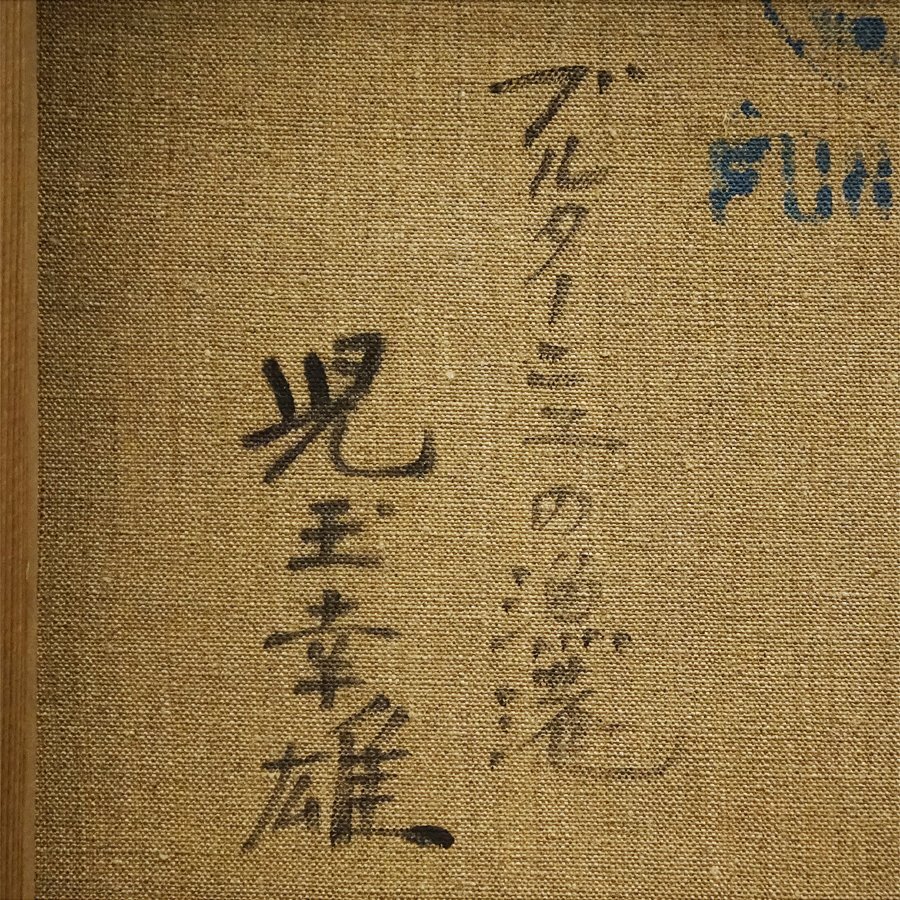 ブルターニュの漁港
児玉幸雄